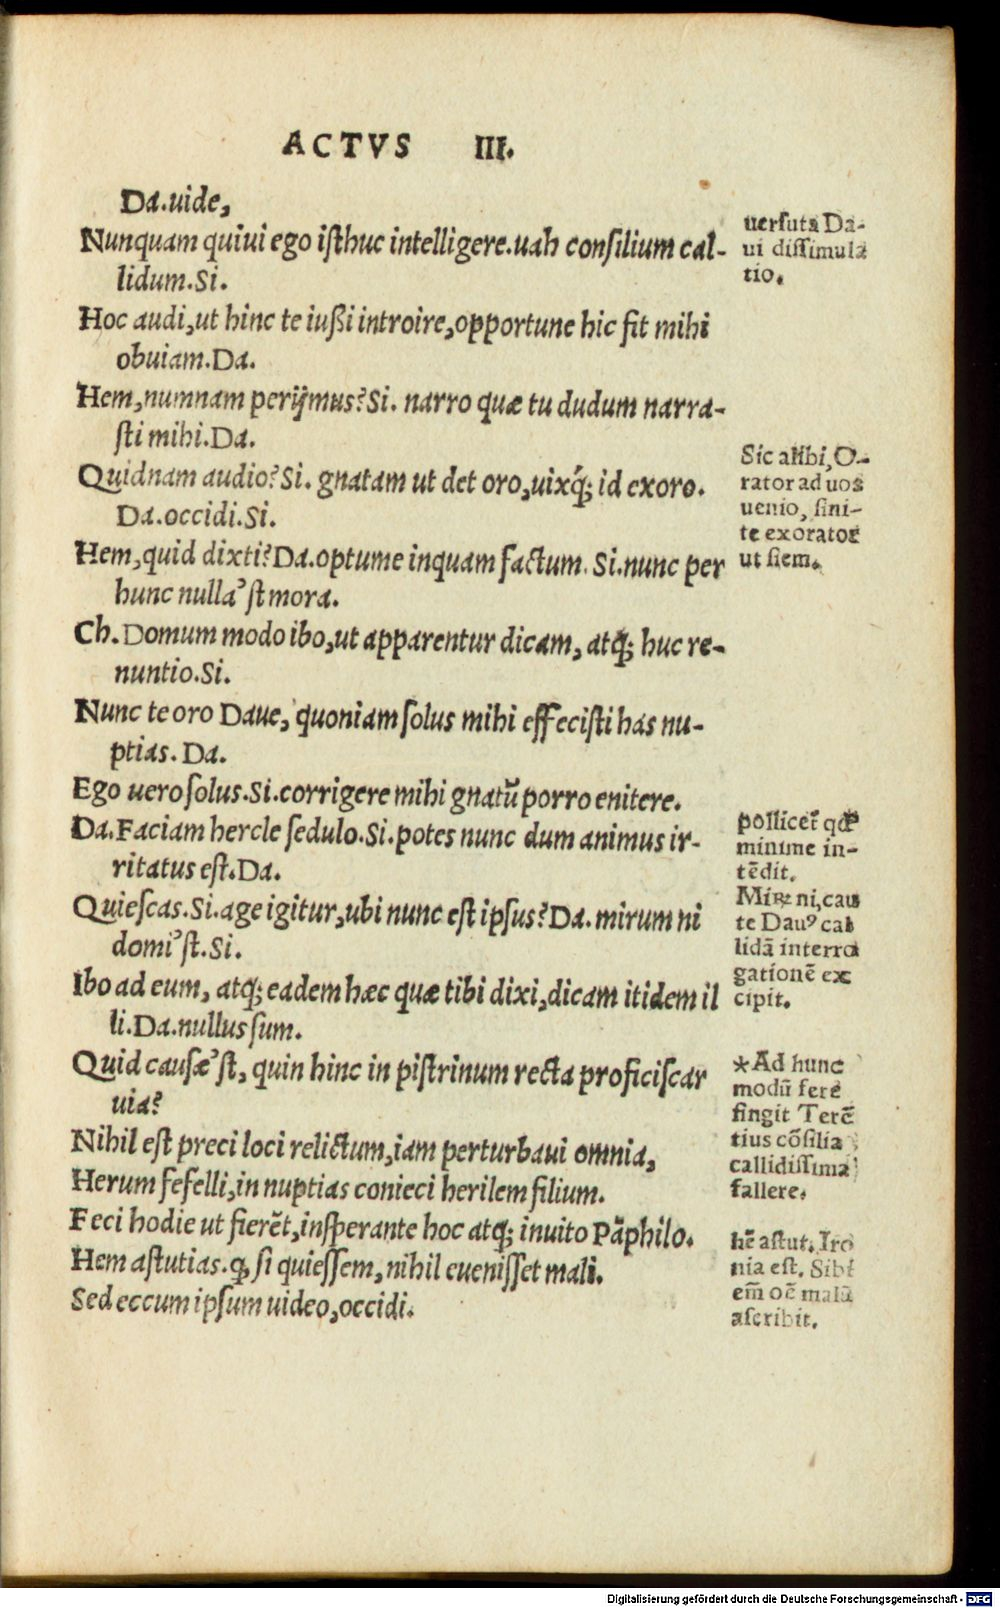 ACTVS III.
Da.uide,
Nunquam quiui ego isthuc intelligere.uah consilium cal-
lidum.Si.
Hoc audi,ut hinc te iußi introire,opportune hic fit mihi
obuiam.Da.
Hem,numnam perijmus?Si. narro quæ tu dudum narra-
sti mihi.Da.
Quidnam audio?Si. gnatam ut det oro,uixq́; id exoro.
Da.occidi.Si.
Hem,quid dixti?Da.optume inquam factum. Si.nunc per
hunc nulla'st mora.
Ch.Domum modo ibo,ut apparentur dicam, atq́; huc re-
nuntio.Si.
Nunc te oro Daue, quoniam solus mihi effecisti has nu-
ptias. Da.
Ego uero solus.Si.corrigere mihi gnatū porro enitere.
Da.Faciam hercle sedulo.Si.potes nunc dum animus ir-
ritatus est.Da.
Quiescas.Si.age igitur,ubi nunc est ipsus?Da. mirum ni
domi'st.Si.
Ibo ad eum, atq́; eadem hæc quæ tibi dixi,dicam itidem il
li.Da.nullus sum.
Quid causæ'st, quin hinc in pistrinum recta proficiscar
uia?
Nihil est preci loci relictum,iam perturbaui omnia,
Herum fefelli,in nuptias conieci herilem filium.
Feci hodie ut fierēt,insperante hoc atq́; inuito Pāphilo.
Hem astutias.q̨ si quiessem,nihil euenisset mali.
Sed eccum ipsum uideo,occidi.
uersuta Da-
ui dissimula
tio.
Sic alibi,O-
rator ad uos
uenio, sini-
te exorator
ut siem.
pollicet̃ qđ
minime in-
tēdit.
Mirꝝ ni,cau
te Dauꝰ cal
lidā interro
gationē ex
cipit.
*Ad hunc
modū fere
fingit Terē
tius cōsilia
callidissima
fallere.
hē astut. Iro
nia est. Sibi
em̄ oē malū
ascribit.
Digitalisierung gefördert durch die Deutsche Forschungsgemeinschaft - DFG